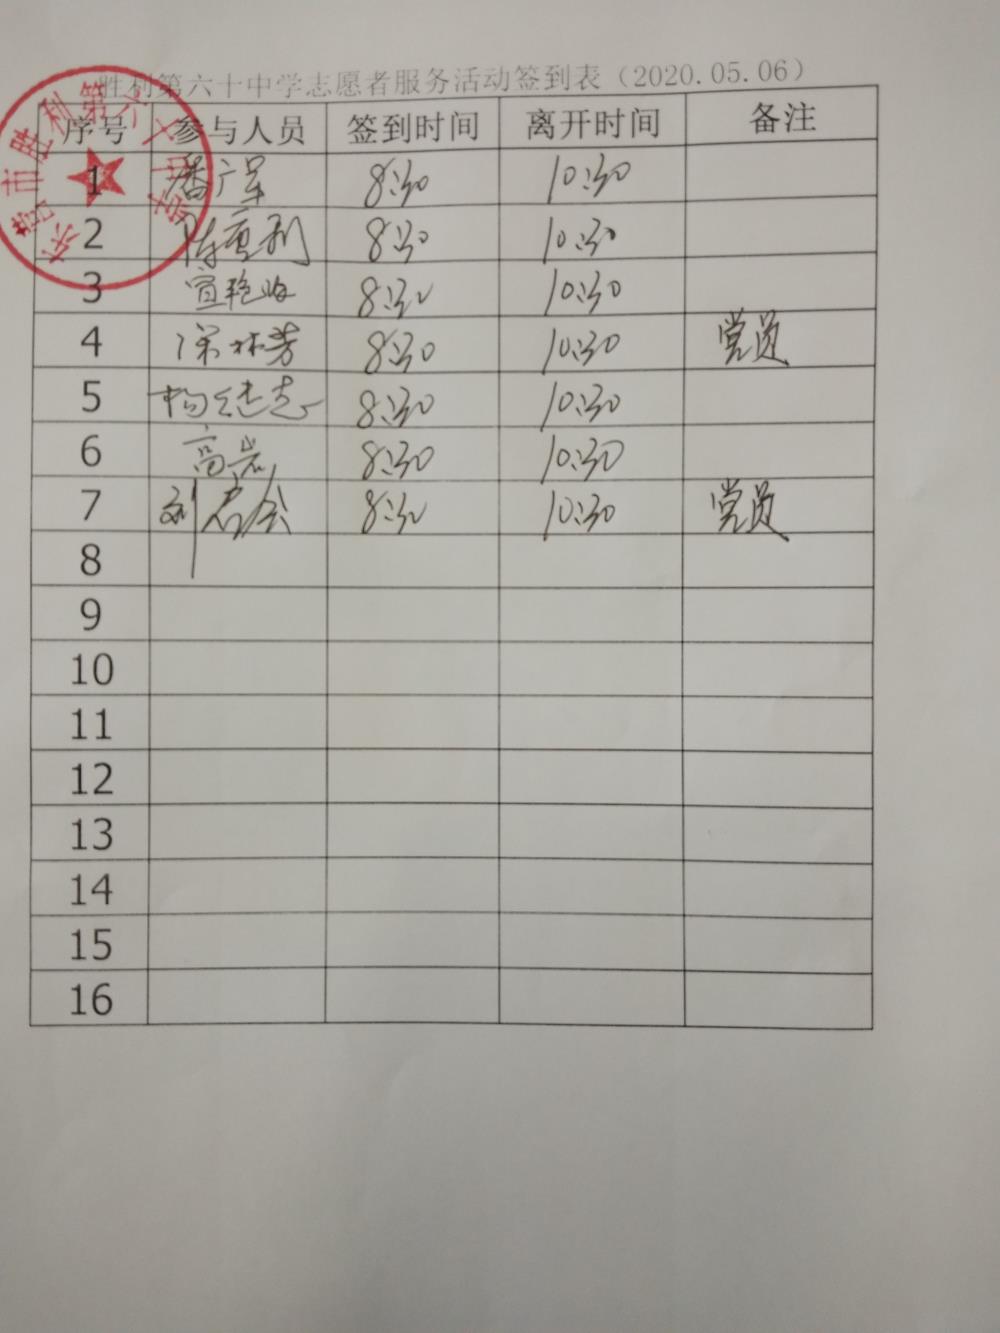 胜利第六十中学志愿者服务活动签到表（2020.05.06）
东营市胜利第六十中学
序号 参与人员 签到时间 离开时间 备注
1 潘广军 8:30 10:30
2 陈重利 8:30 10:30
3 宣艳 8:30 10:30
4 林芳 8:30 10:30 党员
5 杨 志 8:30 10:30
6 高岩 8:30 10:30
7 刘君会 8:30 10:30 党员
8
9
10
11
12
13
14
15
16